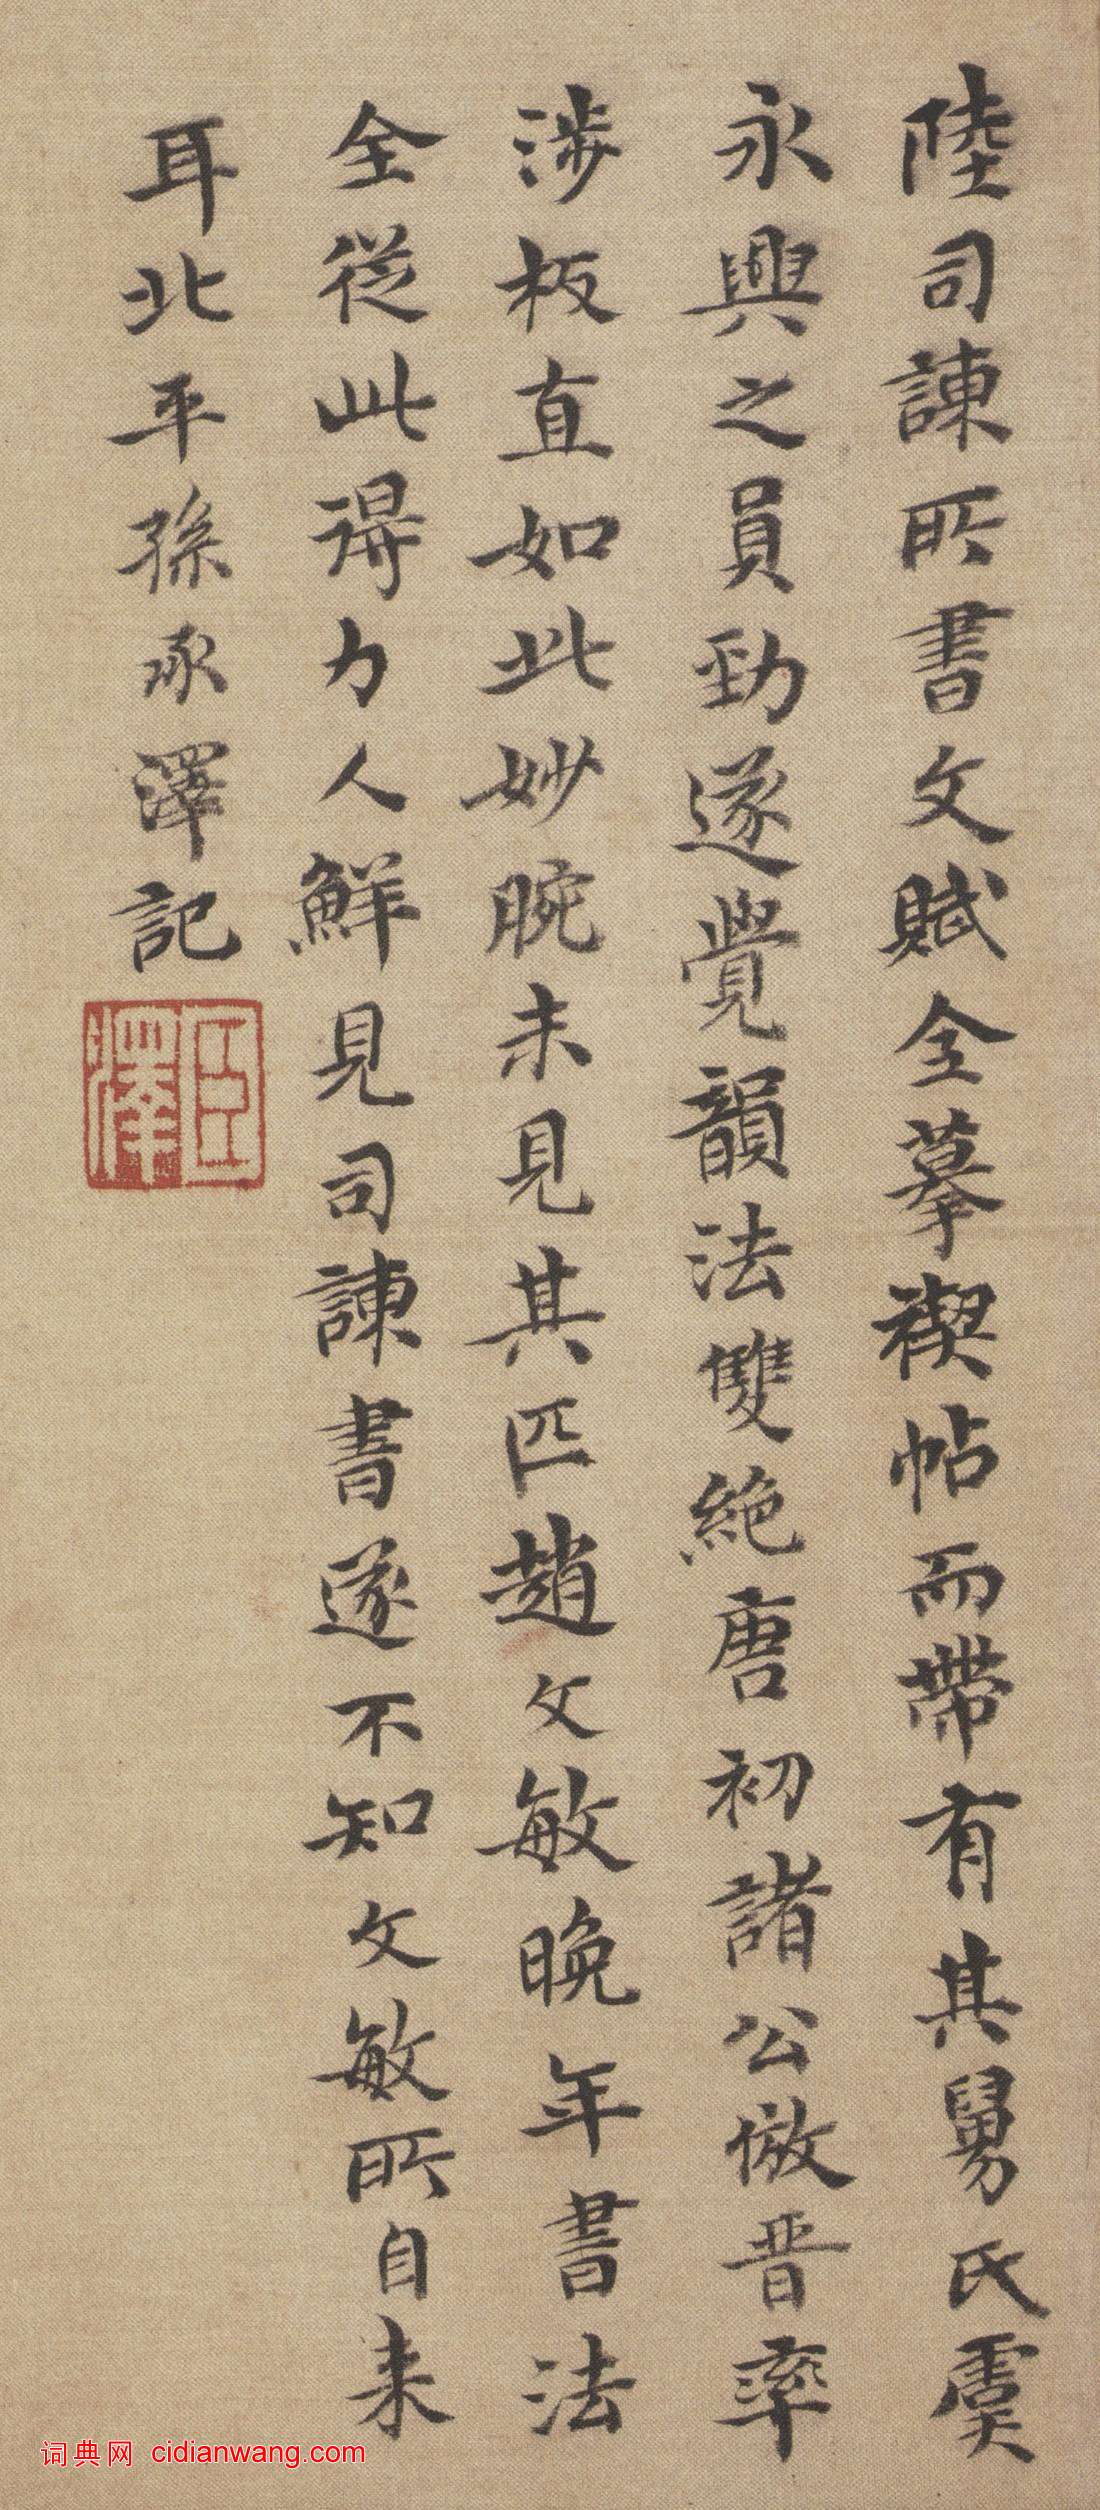 陸司諫所書文賦全摹禊帖而帶有其舅氏虞
永興之員勁遂覺韻法雙絶唐初諸公倣晉率
涉板直如此妙腕未見其匹趙文敏晚年書法
全從此得力人鮮見司諫書遂不知文敏所自来
耳北平孫承澤記
臣澤
词典网 cidianwang.com